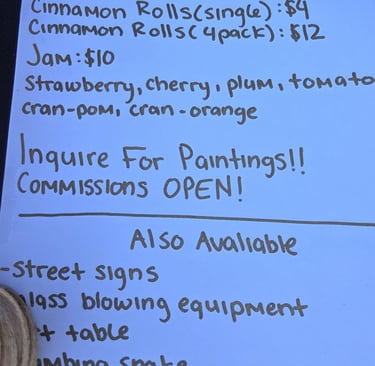 Cinnamon Rolls(single):$4
Cinnamon Rolls(4pack):$12
Jam:$10
Strawberry, cherry, plum, tomato
cran-pom, cran-orange
Inquire For Paintings!!
Commissions OPEN!
Also Avaliable
-Street signs
lass blowing equipment
t table